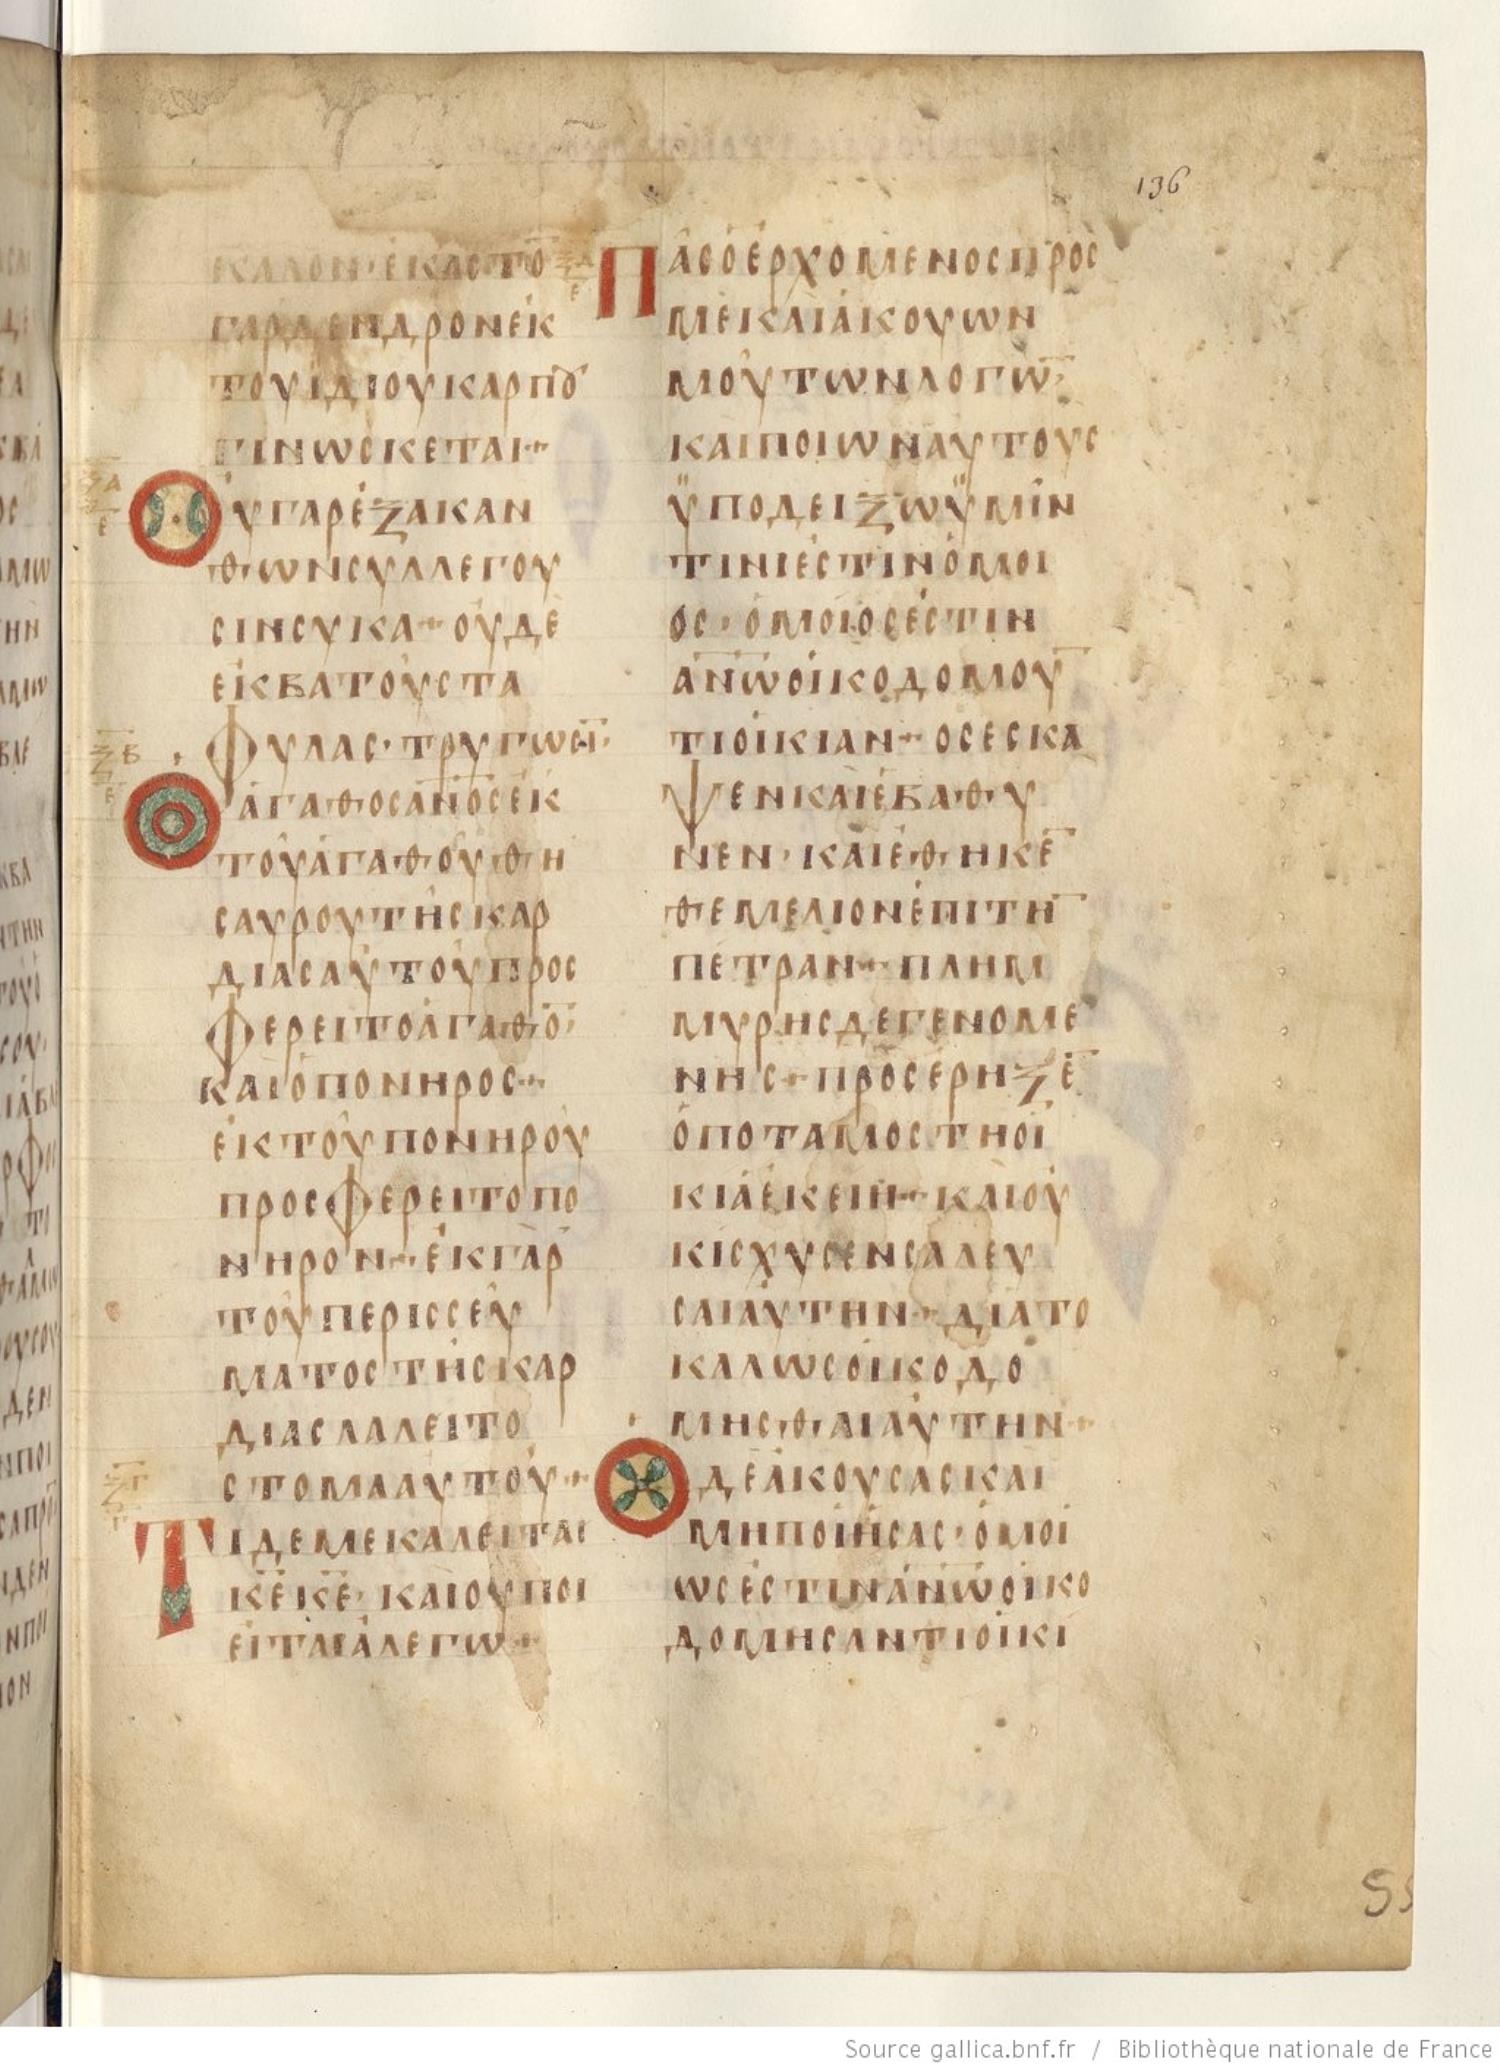 136
ΚΑΛΟΝ· ἙΚΑСΤΟ̅
ΓΑΡΔΕΝΔΡΟΝἘΚ
ΤΟΥἸΔΙΟΥΚΑΡΠȢ
ΓΙΝΩСΚΕΤΑΙ·
ΟΥΓΑΡἘΞΑΚΑΝ
ΘΩΝСΥΛΛΕΓΟΥ
СΙΝСΥΚΑ· ΟΥ̓ΔΕ
ἘΚΒΑΤΟΥСΤΑ
ΦΥΛΑС· ΤΡΥΓΩСΙ̅·
ΟἈΓΑΘΟСΑ̅Ν̅Ο̅СἘΚ
ΤΟΥἈΓΑΘΟΥΘΗ
САΥΡΟΥΤΗ͂СΚΑΡ
ΔΙΑСΑΥ̓ΤΟΥΠΡΟС
ΦΕΡΕΙΤΟἈΓΑΘΟ̅·
ΚΑΙὉΠΟΝΗΡΟС·
ἘΚΤΟΥΠΟΝΗΡΟΥ
ΠΡΟСΦΕΡΕΙΤΟΠΟ
ΝΗΡΟΝ· ἘΚΓᾺΡ
ΤΟΥΠΕΡΙССΕΥ
ΜΑΤΟСΤΗ͂СΚΑΡ
ΔΙΑСΛΑΛΕΙΤΟ
СΤΟΜΑΑΥΤΟΥ·
ΤΙΔΕΜΕΚΑΛΕΙΤΑΙ
Κ̅Ε̅Κ̅Ε̅· ΚΑΙΟΥΠΟΙ
ΕΙΤΑΙἉΛΕΓΩ·
ΠΑ͂СὉἘΡΧΟΜΕΝΟСΠΡΟС
ΜΕΚΑΙἈΚΟΥΩΝ
ΜΟΥΤΩΝΛΟΓΩ̅·
ΚΑΙΠΟΙΩΝΑΥΤΟΥС
ΫΠΟΔΕΙΞΩΫΜΙΝ
ΤΙΝΙἘСΤΙΝὉΜΟΙ
ΟС· ὉΜΟΙΟСἘСΤΙΝ
Α̅Ν̅Ω̅ΟἸΚΟΔΟΜΟΥ̅
ΤΙΟἸΚΙΑΝ· ΟСΕСΚΑ
ΨΕΝΚΑΙἘΒΑΘΥ
ΝΕΝ· ΚΑΙἘΘΗΚΕ̅
ΘΕΜΕΛΙΟΝἘΠΙΤΗ̅
ΠΕΤΡΑΝ· ΠΛΗΜ
ΜΥΡΗСΔΕΓΕΝΟΜΕ
ΝΗС· ΠΡΟСΕΡΗΞΕ̅
ὉΠΟΤΑΜΟСΤΗΟἸ
ΚΙΑἘΚΕΙΝ· ΚΑΙΟΥ
ΚΙСΧΥСΕΝСΑΛΕΥ
СΑΙΑΥΤΗΝ· ΔΙΑΤΟ
ΚΑΛΩСΟἸΚΟΔΟ
ΜΗСΘΑΙΑΥΤΗΝ·
ΟΔΕἈΚΟΥСΑСΚΑΙ
ΜΗΠΟΙΗСΑС· ὉΜΟΙ
ΩСἘСΤΙΝΑ̅Ν̅Ω̅ΟἸΚΟ
ΔΟΜΗСΑΝΤΙΟἸΚΙ
Source gallica.bnf.fr / Bibliothèque nationale de France